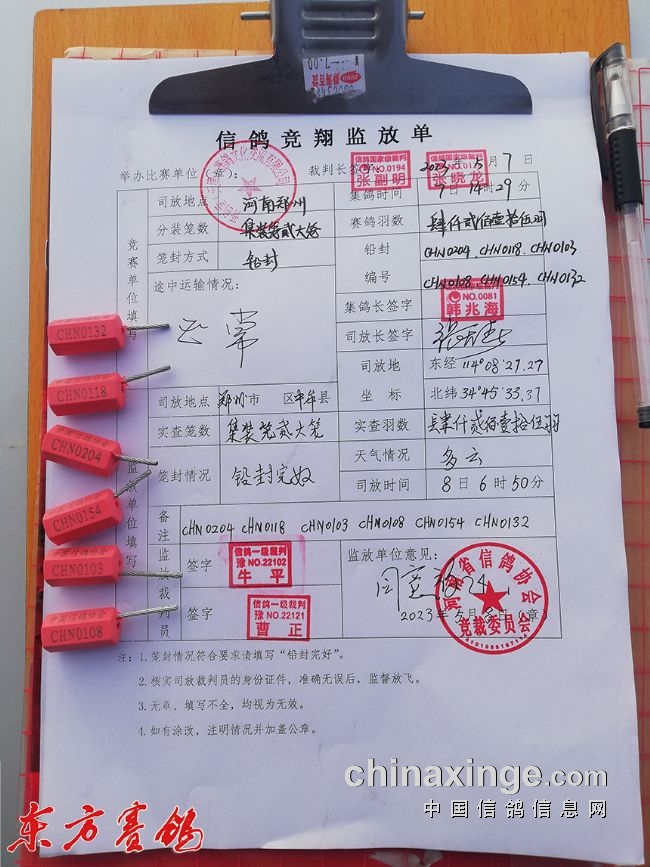 信鸽竞翔监放单
举办比赛单位(章): 裁判长签字: 2023年5月7日
信鸽国家级裁判
NO.0194
张副明
信鸽国家级裁判
张晓龙
竞赛单位填写
司放地点 河南郑州 集鸽时间 7日14时29分
分装笼数 集装笼贰大笼 赛鸽羽数 肆仟贰佰壹拾伍羽
笼封方式 铅封 铅封 CHN0204、CHN0118、CHN0103
编号 CHN0108、CHN0154、CHN0132
途中运输情况: 正常
集鸽长签字
NO.0081
韩兆海
司放长签字
司放地 东经 114°08'27.27
坐标 北纬 34°45'33.37
监放单位填写
司放地点 郑州市 区中牟县
实查笼数 集装笼贰大笼 实查羽数 肆仟贰佰壹拾伍羽
笼封情况 铅封完好 天气情况 多云
司放时间 8日6时50分
备注 CHN0204 CHN0118 CHN0103 CHN0108 CHN0154 CHN0132
监放裁判员
签字
信鸽一级裁判
豫NO.22102
牛平
签字
信鸽一级裁判
豫NO.22121
曹正
监放单位意见:
2023年5月8日(章)
河南省信鸽协会
竞裁委员会
注:1.笼封情况符合要求请填写“铅封完好”。
2.核实司放裁判员的身份证件,准确无误后,监督放飞。
3.无章、填写不全,均视为无效。
4.如有涂改,注明情况并加盖公章。
CHN0132
CHN0118
CHN0204
CHN0154
中国信鸽协会
CHN0103
中国信鸽协会
CHN0108
chinaxinge.com
中国信鸽信息网
东方赛鸽